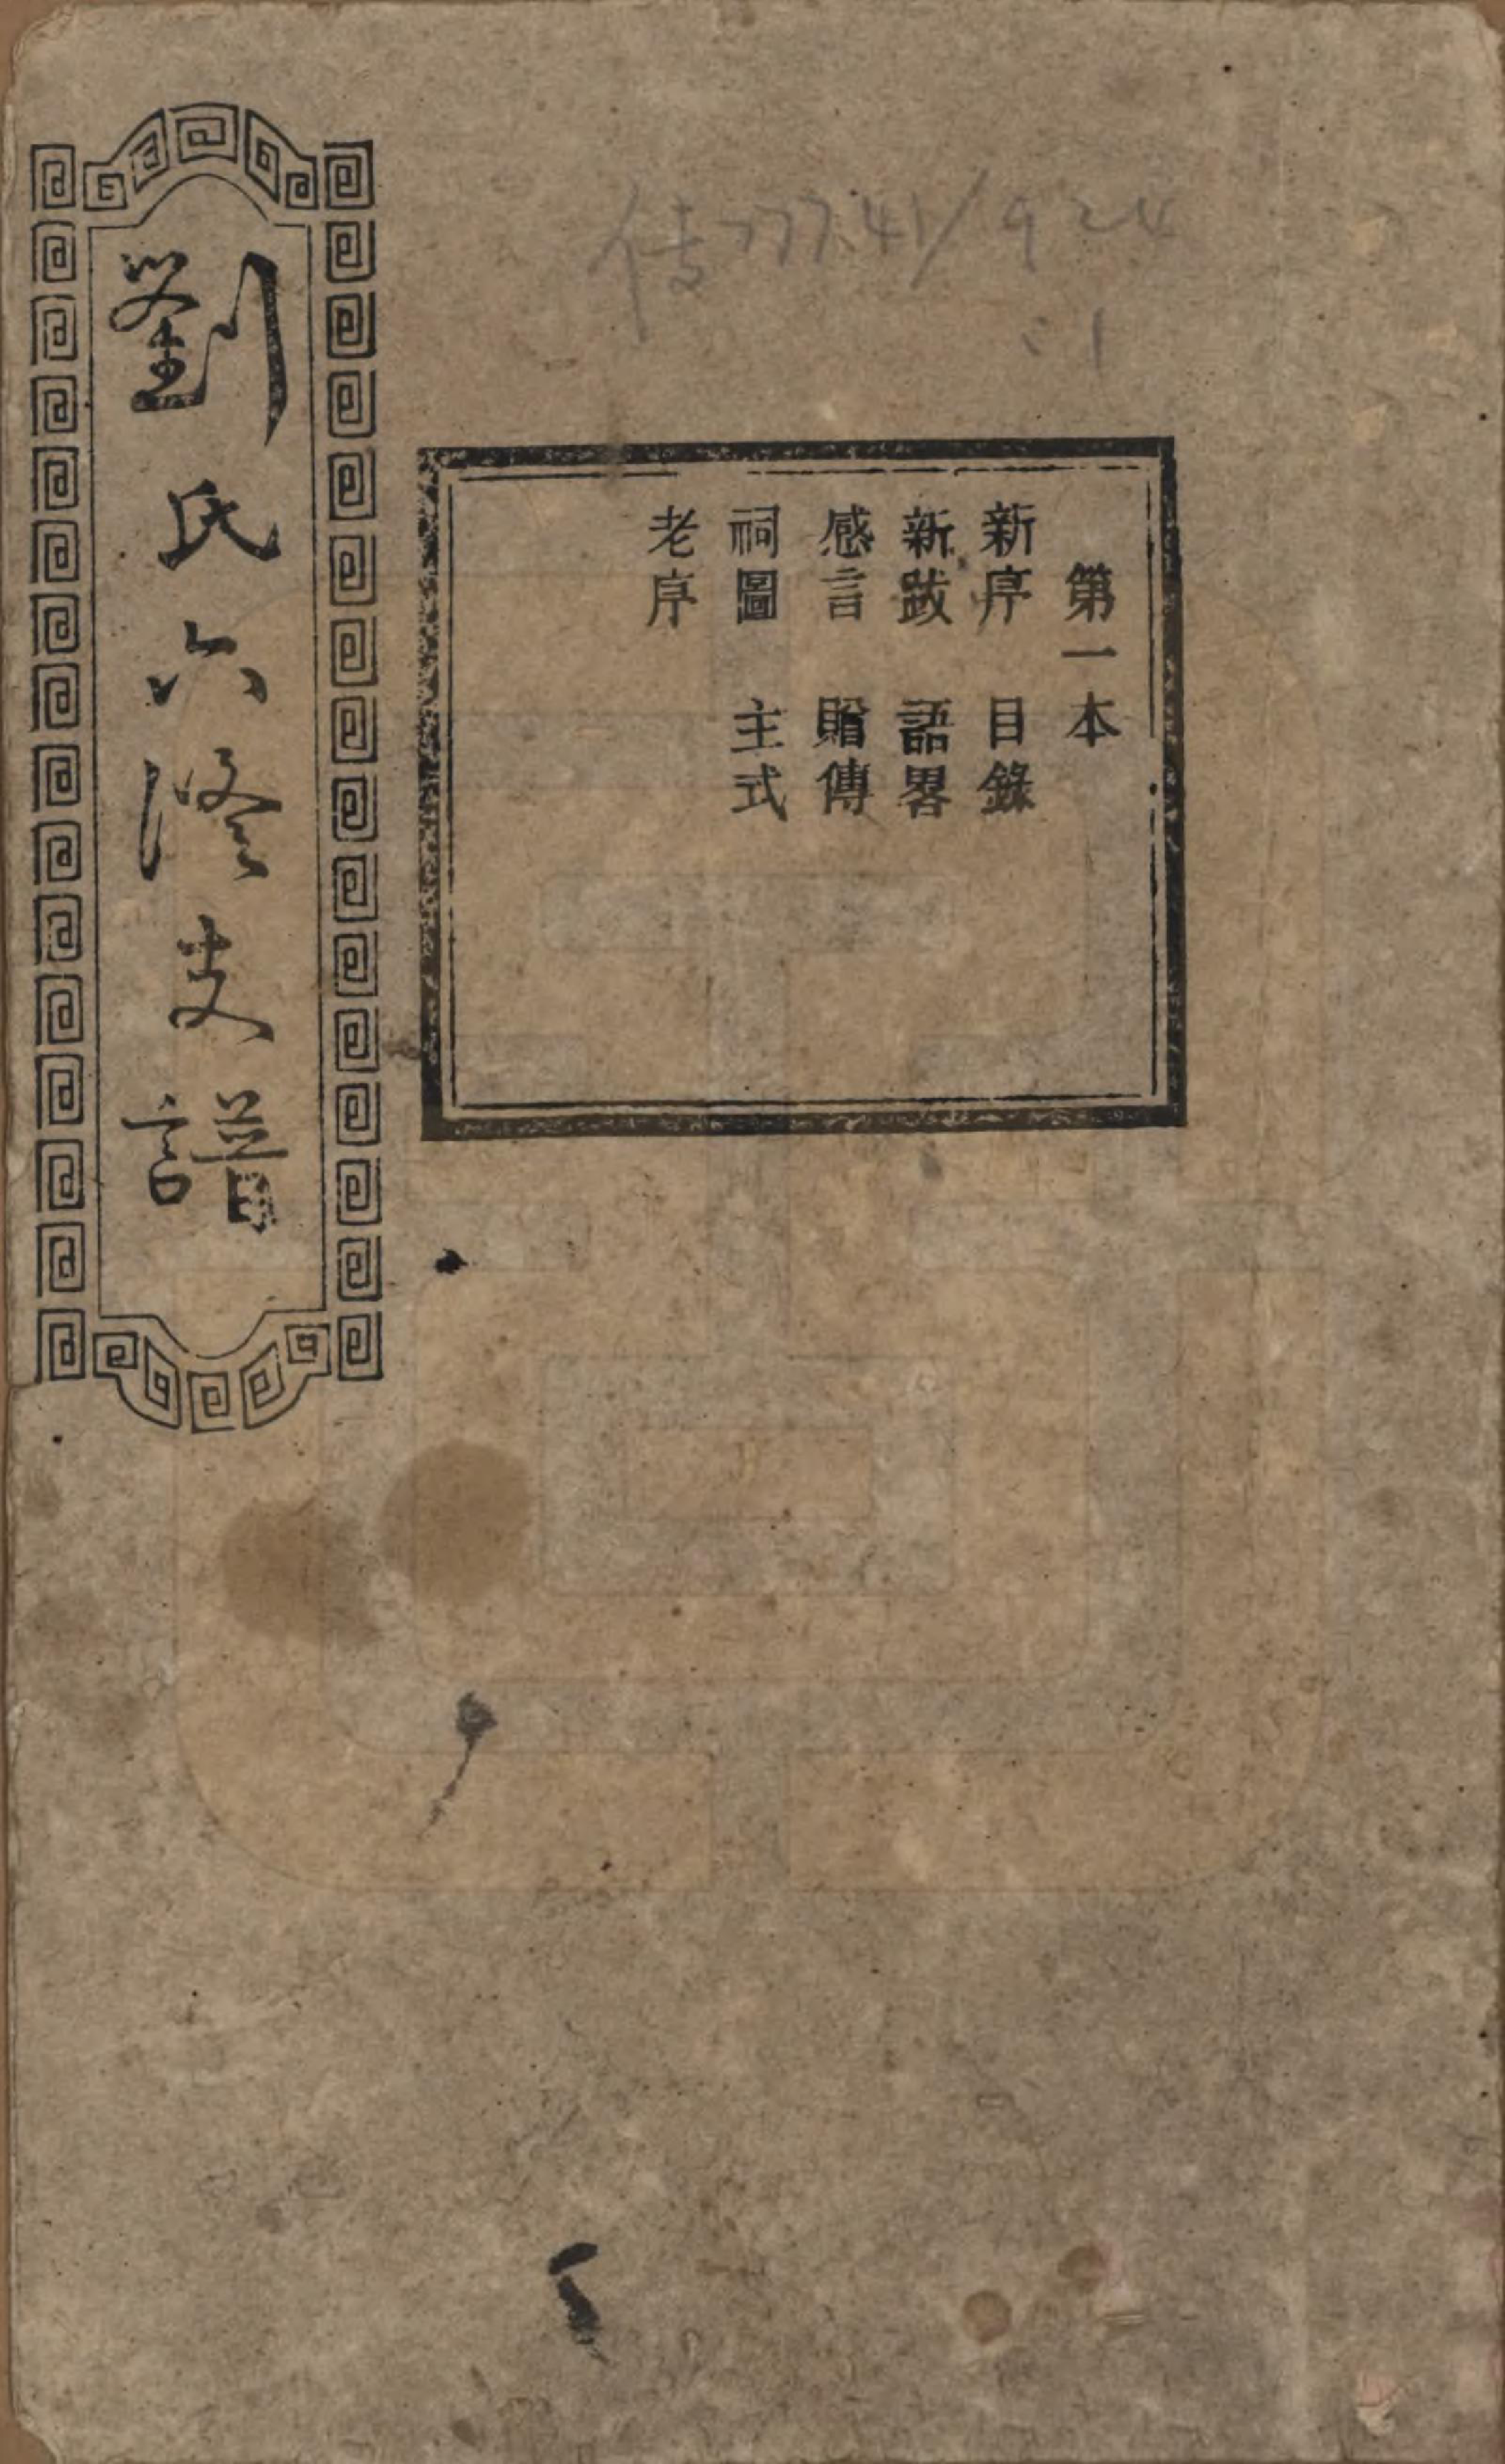 傳777.41/924
:1
第一本
新序　目錄
新跋　語畧
感言　贈傳
祠圖　主式
老序
劉氏六修支譜